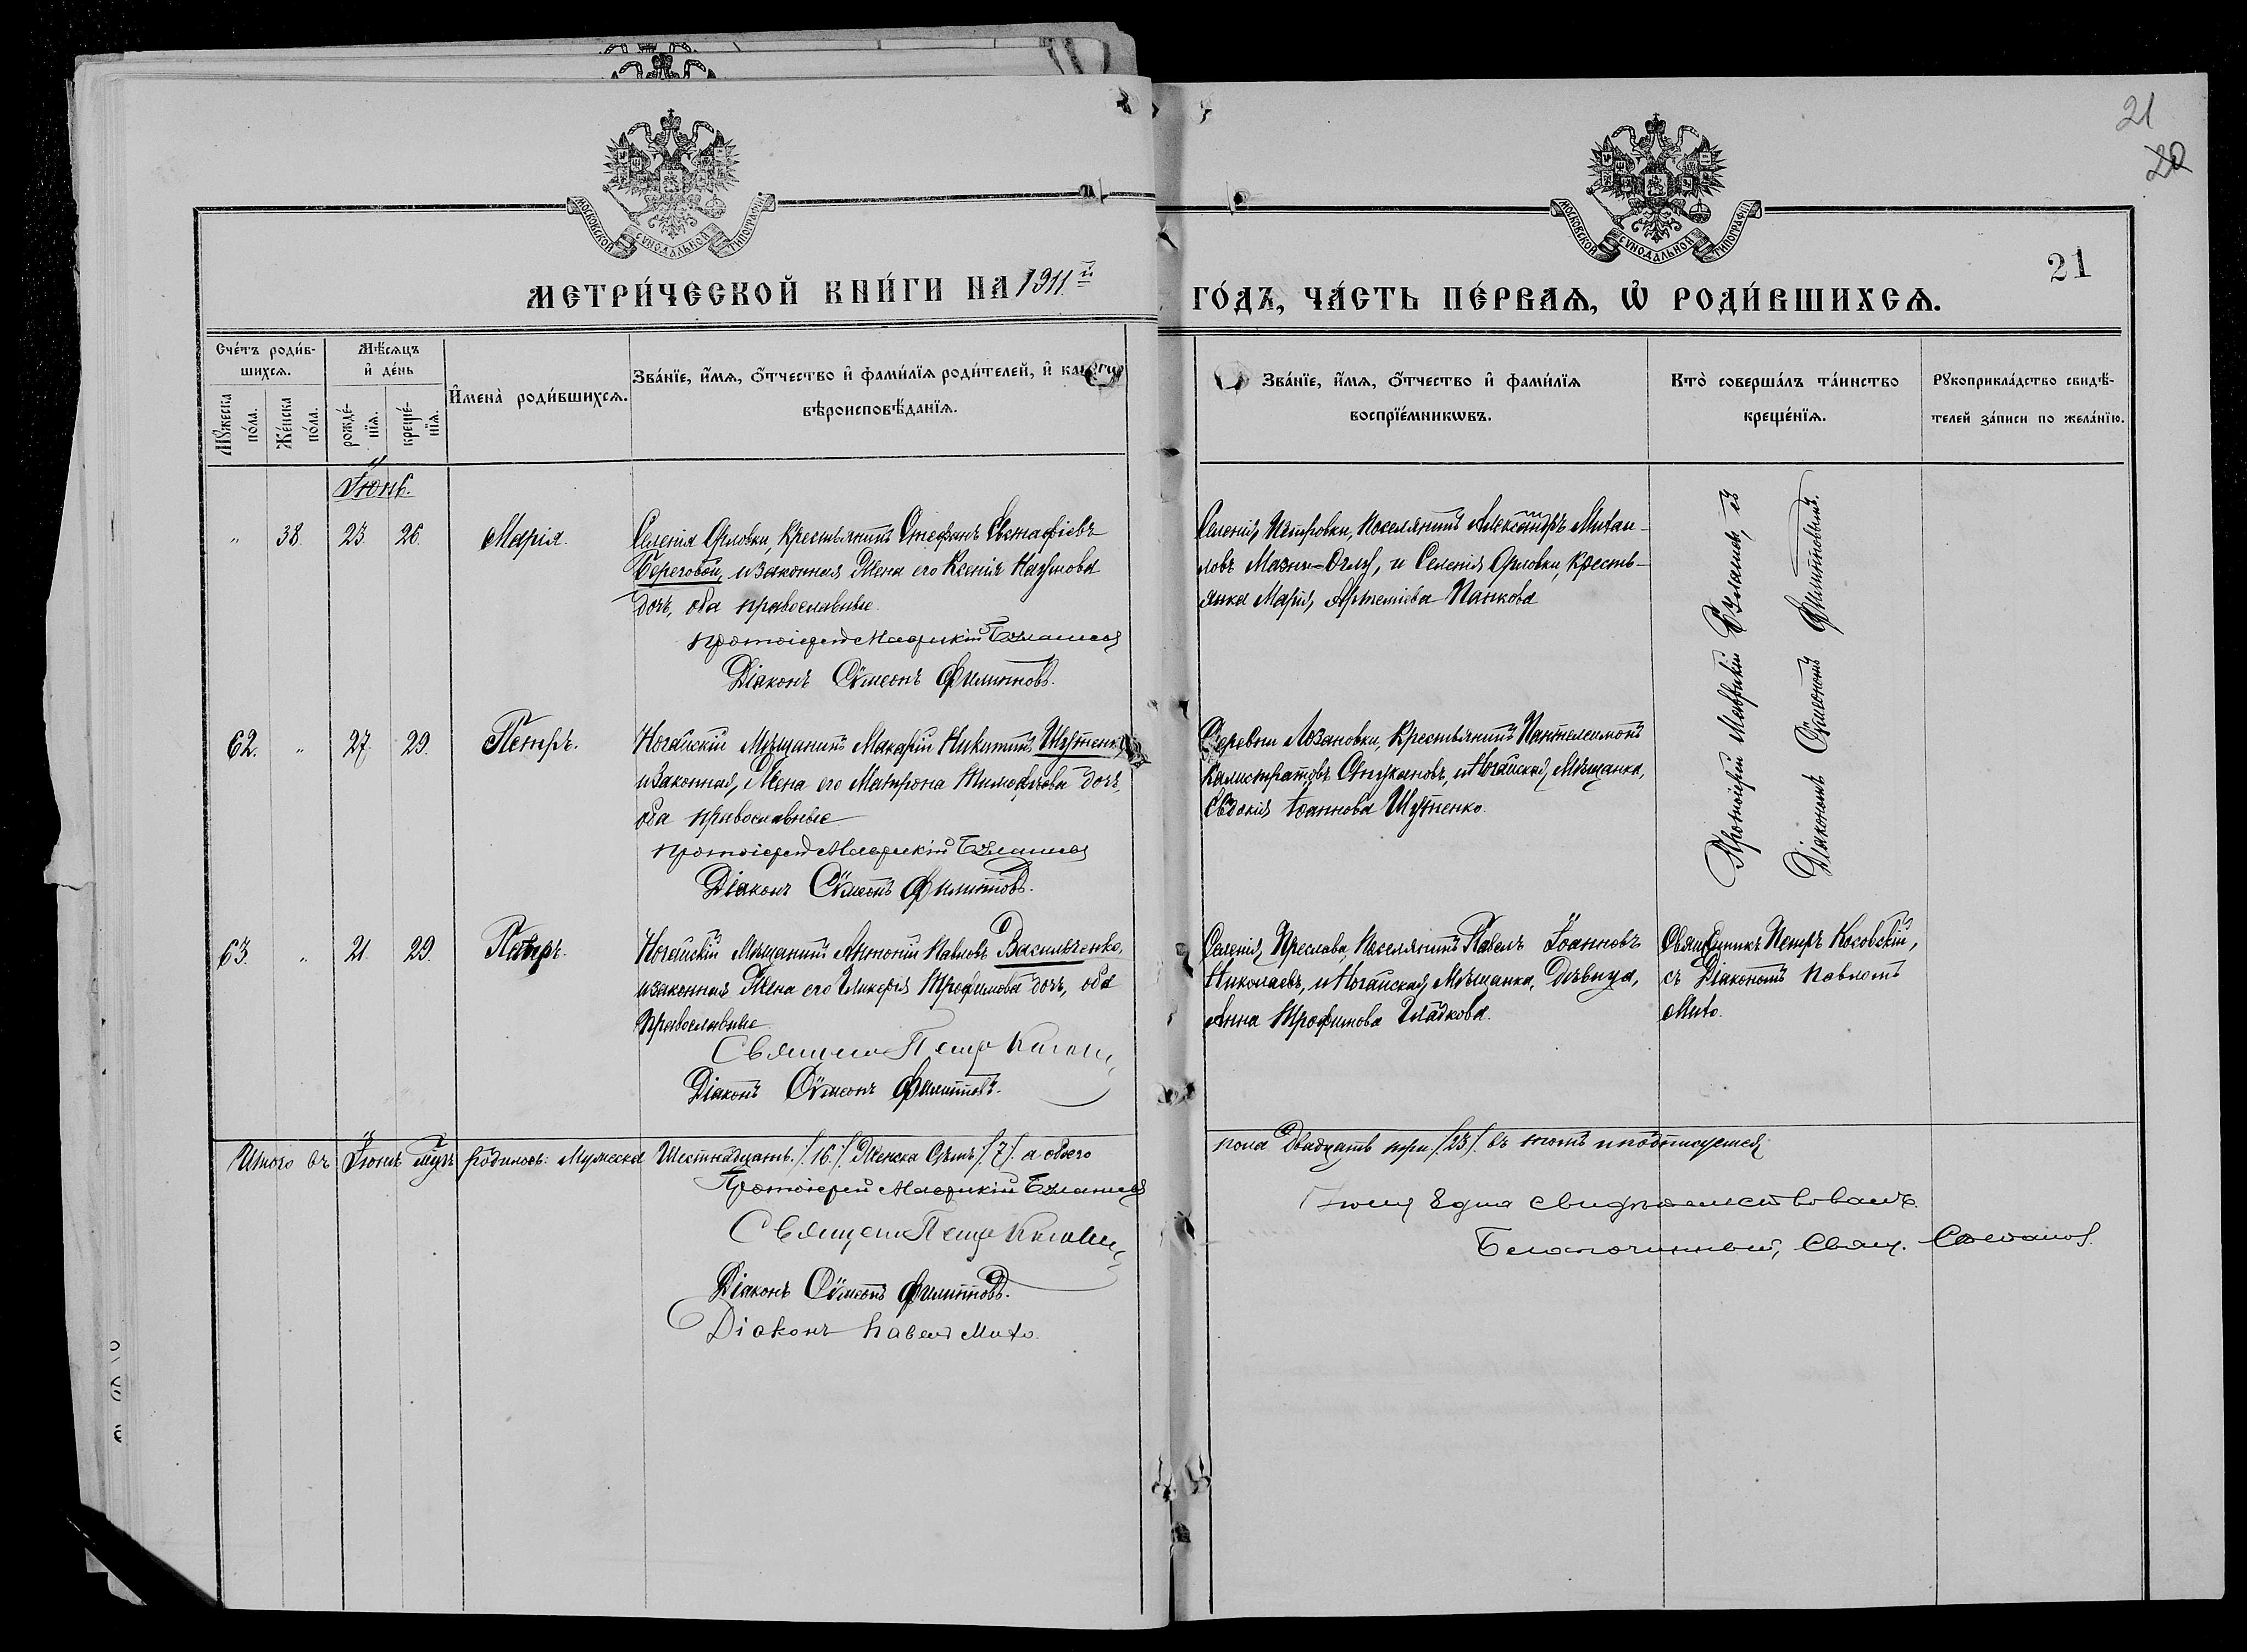 21
20
МОСКОВСКОЙ СУНОДАЛЬНОЙ ТИПОГРАФІИ
МОСКОВСКОЙ СУНОДАЛЬНОЙ ТИПОГРАФІИ
21
МЕТРИ́ЧЕСКОЙ КНИ́ГИ НА 1911й
ГО́ДЪ, ЧА́СТЬ ПЕ́РВАѦ, Ѡ҆ РОДИ́ВШИХСѦ.
Сче́тъ роди́вшихсѧ.
Мꙋ́жеска по́ла.
Же́нска по́ла.
Мѣ́сѧцъ и҆ де́нь
рожде́нїѧ.
креще́нїѧ.
И҆мена̀ роди́вшихсѧ.
Зва́нїе, и҆́мѧ, ѻ҆́тчество и҆ фами́лїѧ роди́телей, и҆ како́гѡ
вѣроисповѣ́данїѧ.
Зва́нїе, и҆́мѧ, ѻ҆́тчество и҆ фами́лїѧ
воспрїе́мникѡвъ.
Кто̀ соверша́лъ та́инство
креще́нїѧ.
Рꙋкоприкла́дство свидѣ́-
телей за́писи по жела́нїю.
Іюнь.
" 38. 25. 26. Марія.
Селенія Орловки, Крестьянинъ Стефанъ Евстафіевъ
Береговой, и законная Жена его Ксенія Наумова
дочь, оба православные.
Протоіерей Маврикій
Діаконъ Сѵмеонъ Филипповъ.
Селенія Петровки, Поселянинъ Александръ Михаи-
ловъ Мазни-Оглу, и Селенія Орловки, Кресть-
янка Марія Артеміева Панкова
Протоіерей Маврикій съ
Діакономъ Сѵмеономъ Филипповымъ.
62. " 27 29. Петръ.
Ногайскій Мѣщанинъ Макарій Никитинъ Шутенко
и законная Жена его Матрона Тимофѣева дочь,
оба православные
Протоіерей Маврикій
Діаконъ Сѵмеонъ Филипповъ.
Деревни Лозановки, Крестьянинъ Пантелеимонъ
Калистратовъ и Ногайская Мѣщанка,
Евдокія Іоаннова Шутенко.
63. " 21. 29. Петръ.
Ногайскій Мѣщанинъ Антоній Павловъ Васильченко,
и законная Жена его Гликерія Трофимова дочь, оба
православные
Священ Петръ
Діаконъ Сѵмеонъ Филипповъ.
Селенія Преслава, Поселянинъ Павелъ Іоанновъ
Николаевъ, и Ногайская Мѣщанка, Дѣвица,
Анна Трофимова Гладкова.
Священникъ Петръ Косовскій,
съ Діакономъ Павломъ
Михо.
Итого въ Іюнѣ родилось: Мужеска Шестнадцать /16/. Женска Семь /7/. а обоего
пола Двадцать три /23/. въ томъ и подписуемся:
Протоіерей Маврикій
Священ Петръ
Діаконъ Сѵмеонъ Филипповъ.
Діаконъ Павелъ Михо.
свидѣтельствовалъ
Благочинный, Свящ.